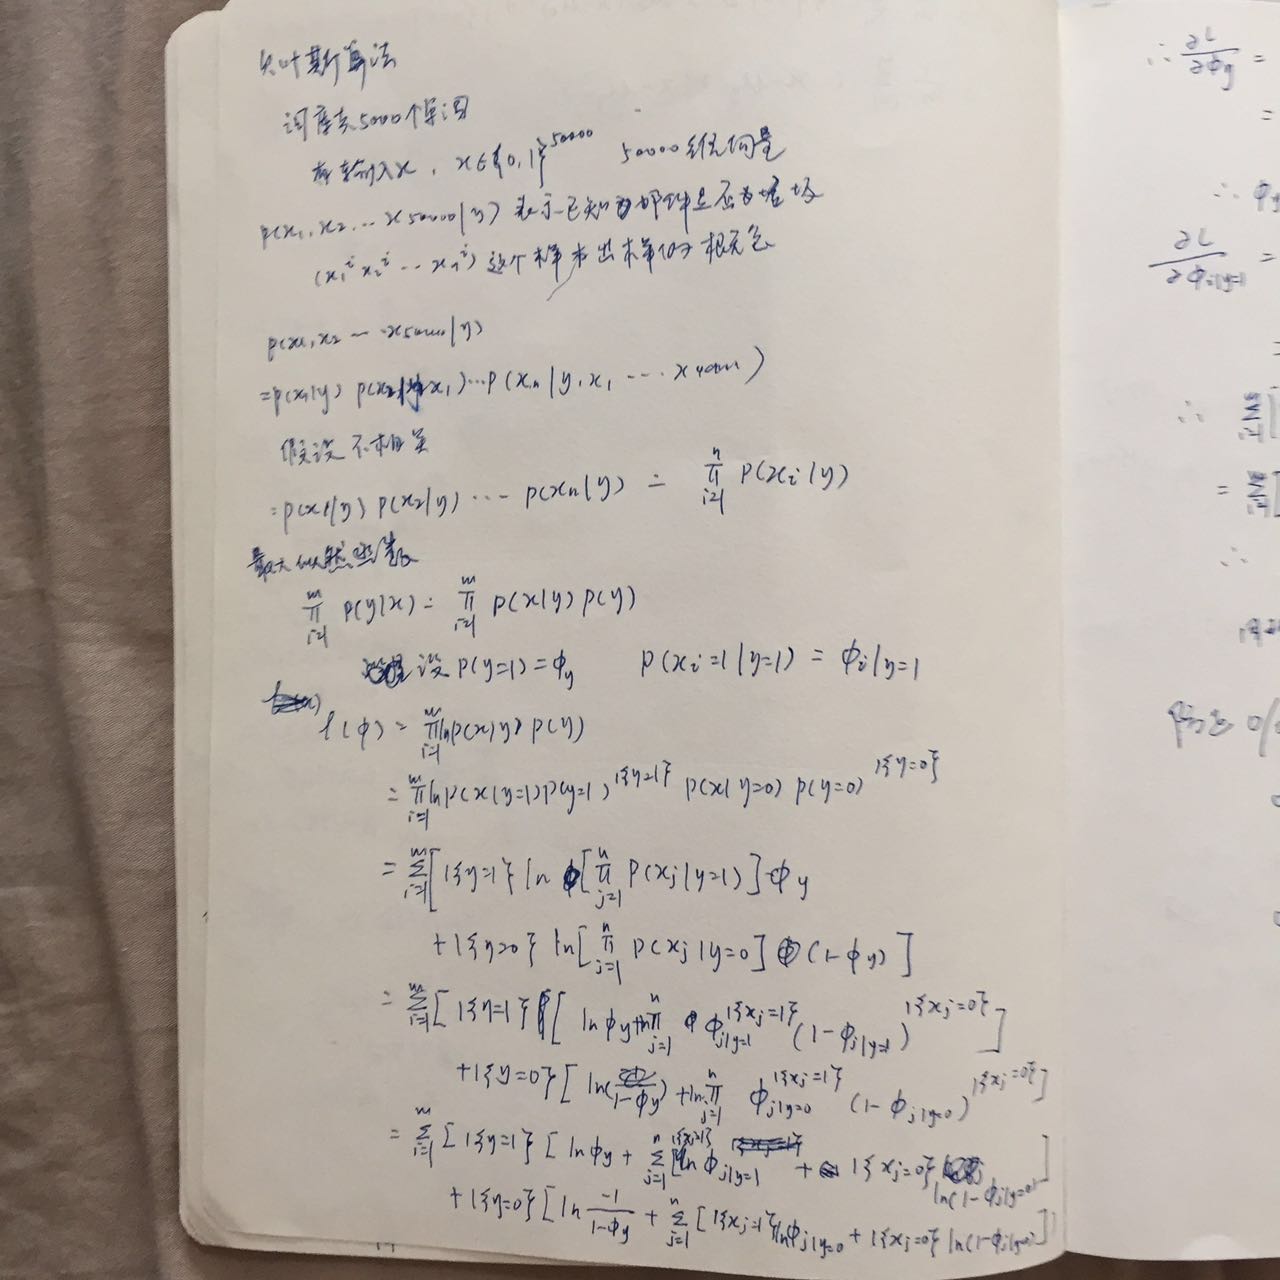 贝叶斯算法
词库共5000个单词
有输入x, x∈{0,1}^50000 50000维向量
p(x1,x2...x50000|y) 表示已知邮件是否为垃圾
(x1^i x2^i ... xn^i) 这个样本出
p(x1,x2 ... x50000|y)
=p(x1|y) p(x2|y,x1)...p(xn|y,x1 ... x49999)
假设不相关
=p(x1|y) p(x2|y) ... p(xn|y) = ∏_{i=1}^n p(xi|y)
最大似然函数
∏_{i=1}^m p(y|x) = ∏_{i=1}^m p(x|y) p(y)
设 p(y=1)=ϕy p(xi=1|y=1) = ϕi|y=1
l(ϕ) = ∏_{i=1}^m ln p(x|y) p(y)
= ∏_{i=1}^m ln p(x|y=1) p(y=1)^{1{y=1}} p(x|y=0) p(y=0)^{1{y=0}}
= ∑_{i=1}^m [1{y=1} ln [∏_{j=1}^n p(xj|y=1)] ϕy
+ 1{y=0} ln[∏_{j=1}^n p(xj|y=0] (1-ϕy)]
= ∑_{i=1}^m [1{y=1} [ln ϕy + ln ∏_{j=1}^n ϕj|y=1^{1{xj=1}} (1-ϕj|y=1)^{1{xj=0}}]
+ 1{y=0} [ln( 1-ϕy) + ln ∏_{j=1}^n ϕj|y=0^{1{xj=1}} (1-ϕj|y=0)^{1{xj=0}}]
= ∑_{i=1}^m [1{y=1} [ln ϕy + ∑_{j=1}^n [1{xj=1} ln ϕj|y=1 + 1{xj=0} ln(1-ϕj|y=0)]
+ 1{y=0} [ln -1/(1-ϕy) + ∑_{j=1}^n [1{xj=1} ln ϕj|y=0 + 1{xj=0} ln(1-ϕj|y=0)]]
∴ ∂L/∂ϕy =
=
∴ ϕy
∂L/∂ϕi|y=1 =
=
∴ ∑_{i=1}^m [
= ∑_{i=1}^m [
∴
0/